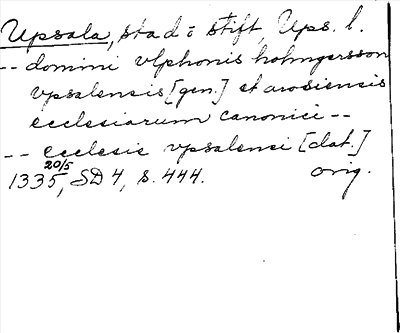 Upsala, stad o stift, Ups. l.
-- domini vlphonis holmgersson
vpsalensis [gen.] et arosiensis
ecclesiarum canonici --
-- ecclesie vpsalensi [dat.]
20/5
1335, SD 4, s. 444. orig.